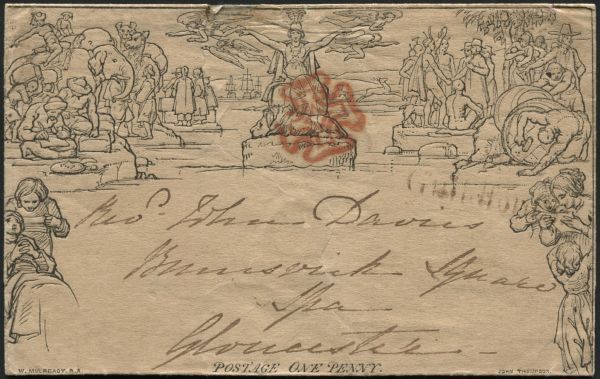 Revd. John Davies
Brunswick Square
Spa
Gloucester
POSTAGE ONE PENNY.
W. MULREADY. R.A.
JOHN THOMPSON.